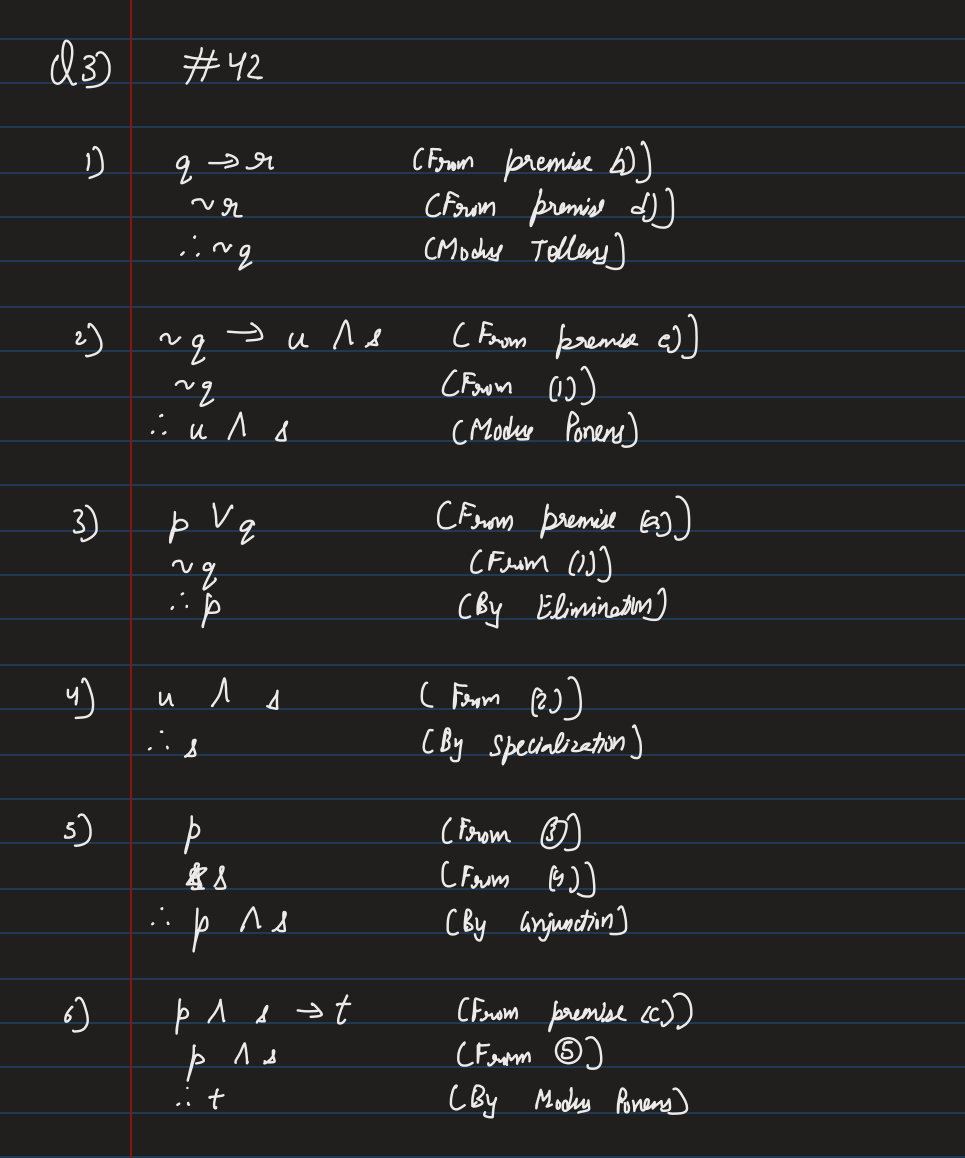 Q3) #42
1) q → r (From premise b))
~r (From premise d))
∴ ~q (Modus Tollens)
2) ~q → u ∧ s (From premise e))
~q (From (1))
∴ u ∧ s (Modus Ponens)
3) p ∨ q (From premise (a))
~q (From (1))
∴ p (By Elimination)
4) u ∧ s (From (2))
∴ s (By Specialization)
5) p (From (3))
s (From (4))
∴ p ∧ s (By Conjunction)
6) p ∧ s → t (From premise (c))
p ∧ s (From ⑤)
∴ t (By Modus Ponens)